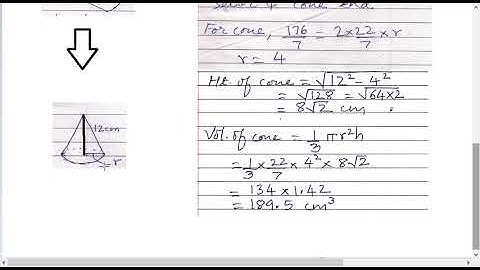 For cone, 176/7 = 2×22/7 × r
r = 4
Ht. of cone = √12² - 4²
= √128 = √64×2
= 8√2 cm .
Vol. of cone = 1/3 πr²h
= 1/3 × 22/7 × 4² × 8√2
= 134 × 1.42
= 189.5 cm³
12cm
r